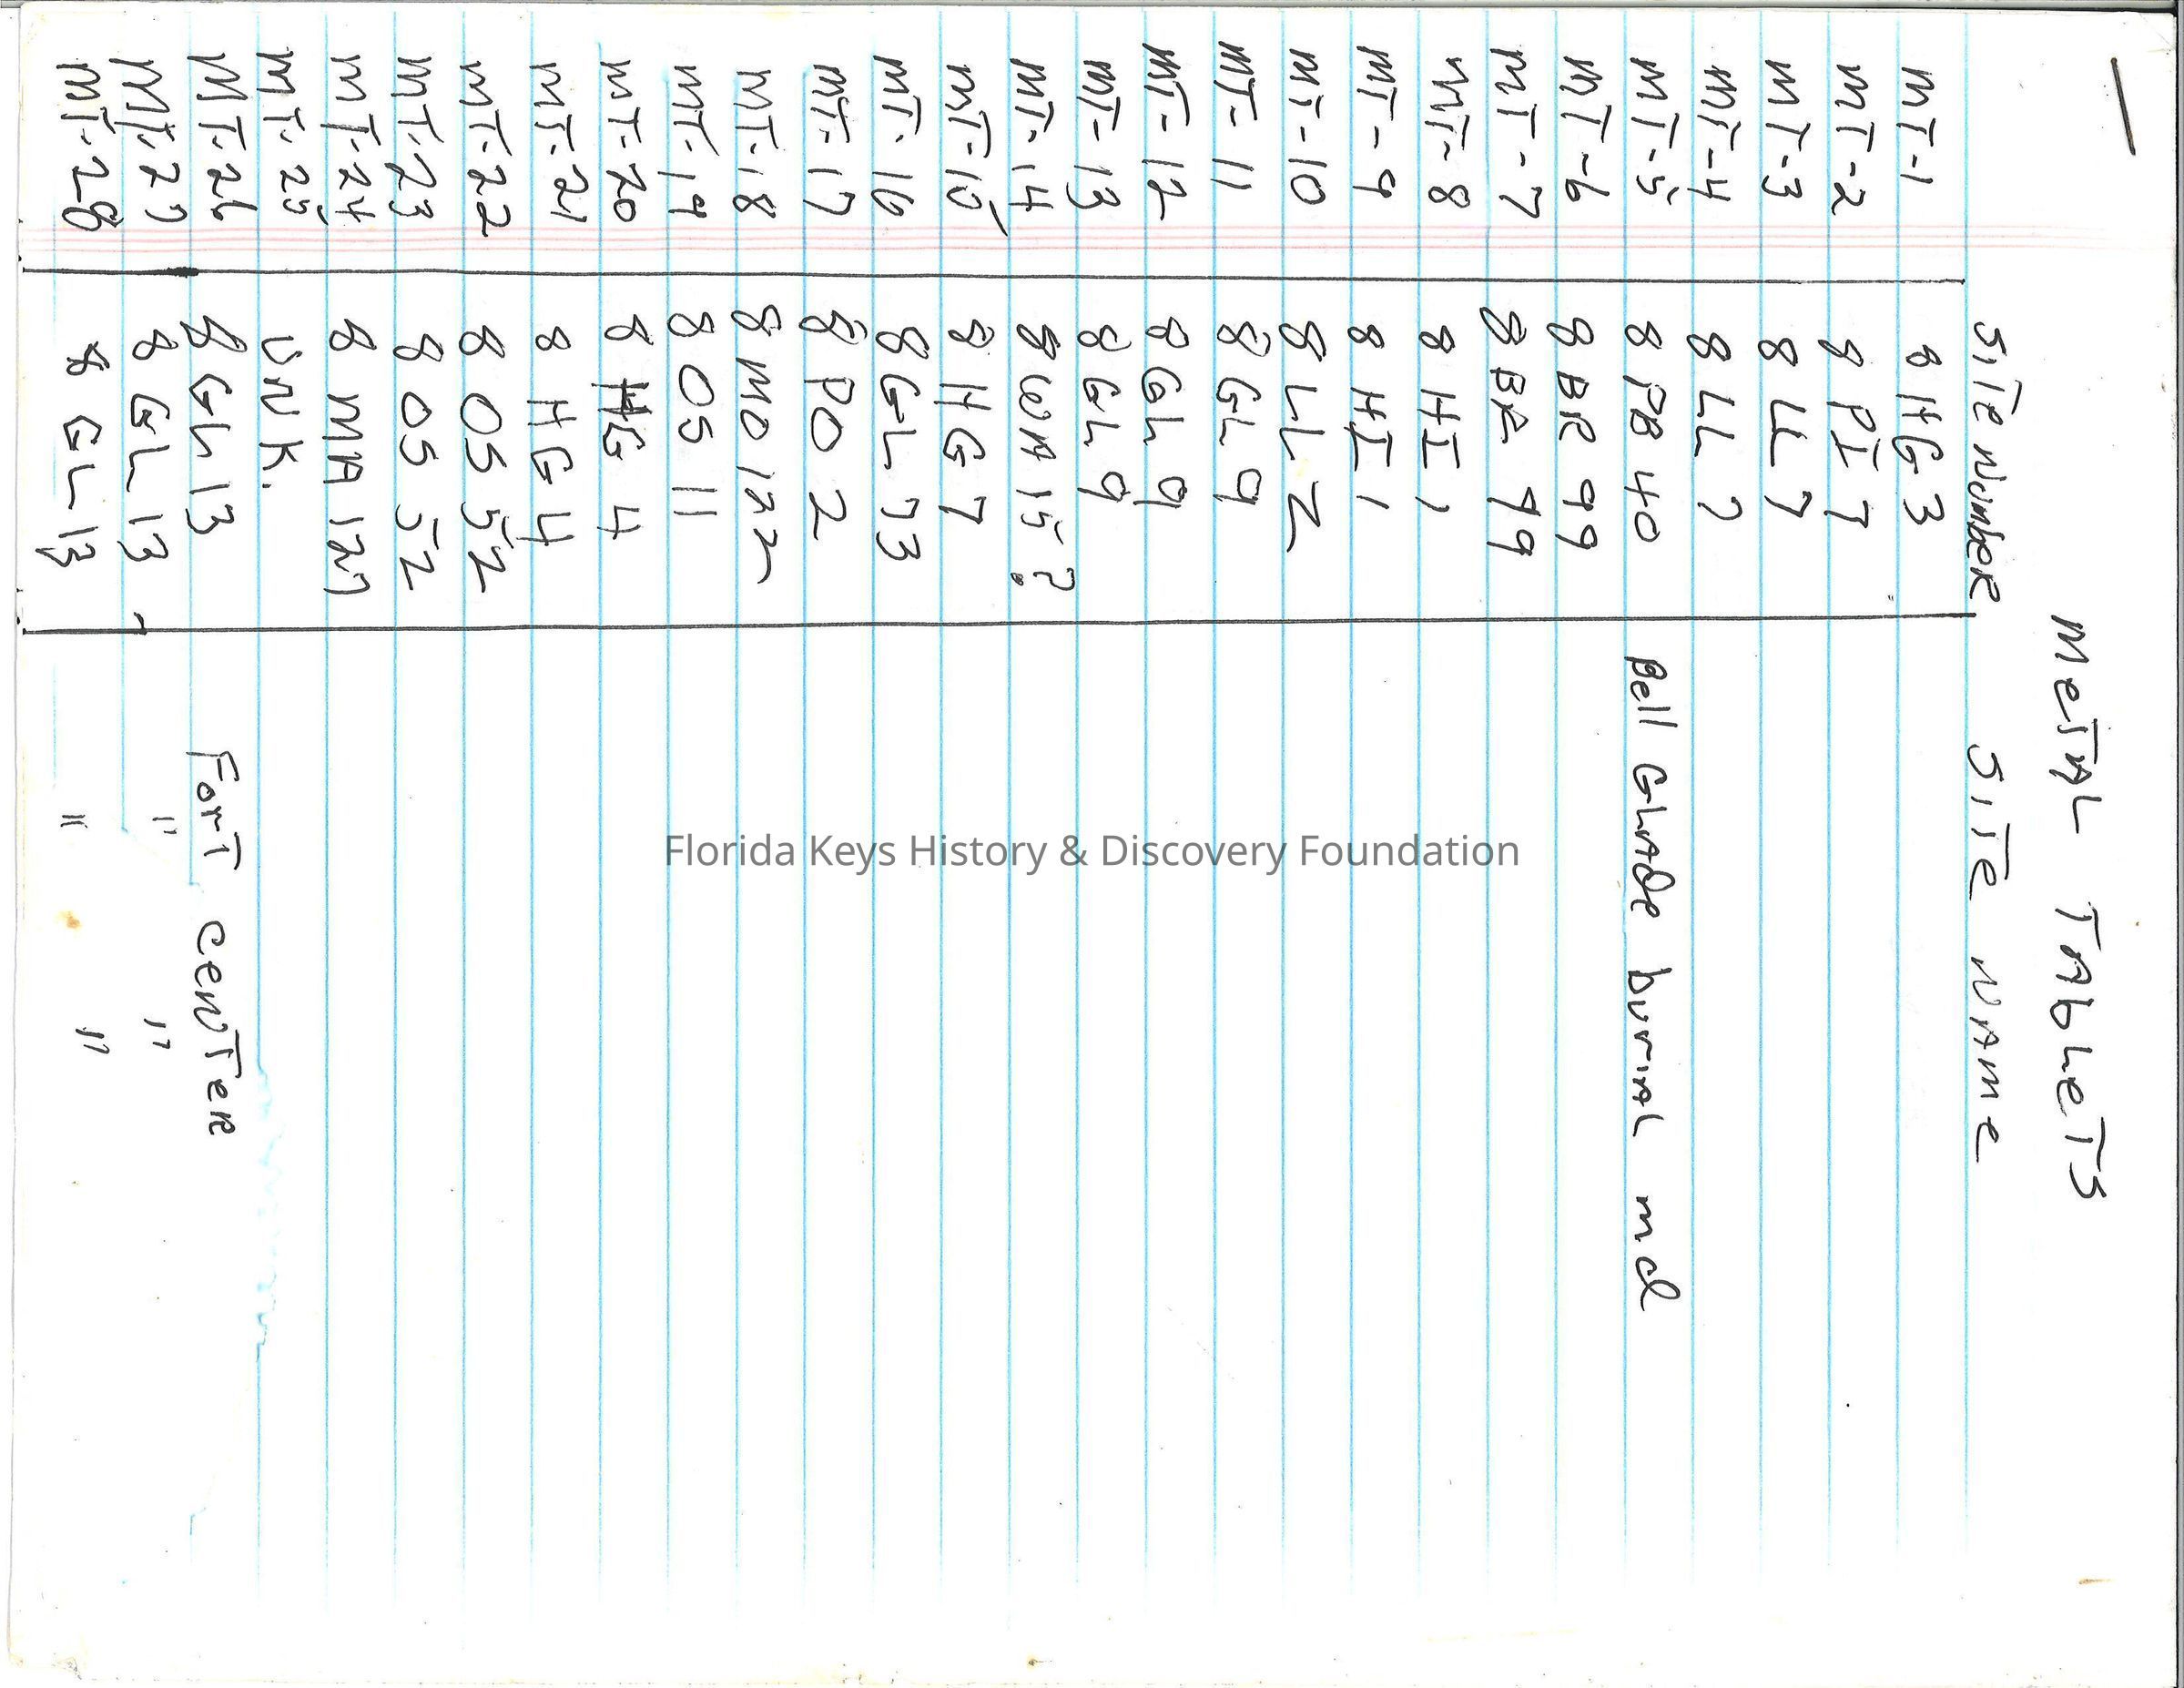 1
METAL TABLETS
SITE NUMBER SITE NAME
MT-1 8 HG 3
MT-2 8 PI 7
MT-3 8 LL 7
MT-4 8 LL 7
MT-5 8 PB 40 Bell GLADe buriAL md
MT-6 8 BR 99
MT-7 8 BR 99
MT-8 8 HI 1
MT-9 8 HI 1
MT-10 8 LL 2
MT-11 8 GL 9
MT-12 8 GL 9
MT-13 8 GL 9
MT-14 8 WA 15 ?
MT-15 8 HG 7
MT-16 8 GL 13
MT-17 8 PO 2
MT-18 8 MO 122
MT-19 8 OS 11
MT-20 8 HG 4
MT-21 8 HG 4
MT-22 8 OS 52
MT-23 8 OS 52
MT-24 8 MA 127
MT-25 UNK.
MT-26 8 GL 13 ForT cenTer
MT-27 8 GL 13 " "
MT-28 8 GL 13 " "
Florida Keys History & Discovery Foundation